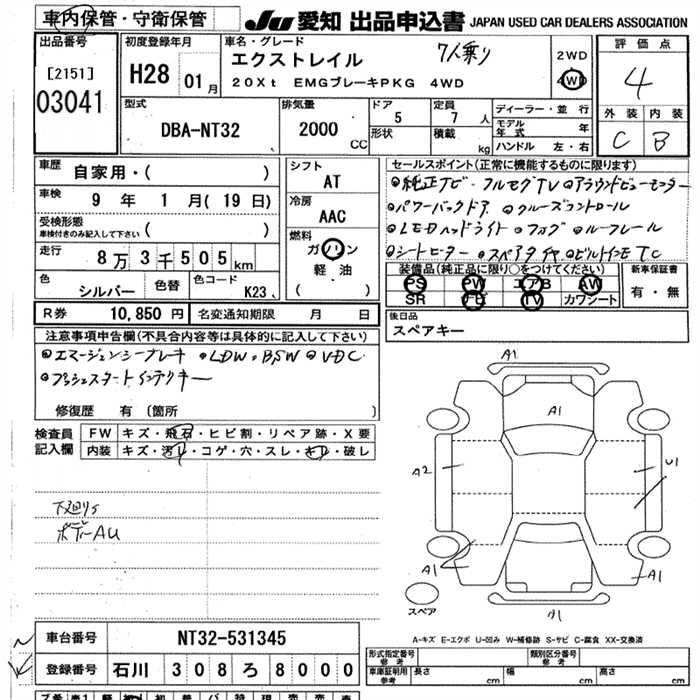 車内保管・守衛保管
JU 愛知 出品申込書 JAPAN USED CAR DEALERS ASSOCIATION
出品番号
[2151]
03041
初度登録年月
H28 01月
車名・グレード
エクストレイル
7人乗り
20Xt EMGブレーキPKG 4WD
2WD
4WD
評価点
4
外装 内装
C B
型式
DBA-NT32
排気量
2000 CC
ドア 5
形状
定員 7 人
積載 kg
ディーラー・並行
モデル年式 年
ハンドル 左・右
車歴 自家用・( )
車検 9 年 1 月 (19 日)
受検形態
車検付きのみ記入して下さい ( )
走行 8万3千505km
色 シルバー 色替 色コード K23
シフト
AT
冷房
AAC
燃料
ガソリン
軽・油
( )
セールスポイント(正常に機能するものに限ります)
●純正TV・フルセグTV ●アラウンドビューモニター
●パワーバックドア ●クルーズコントロール
●LEDヘッドライト ●フォグ ●ルーフレール
●シートヒーター ●スペアタイヤ ●ビルトインETC
装備品(純正品に限り○をつけてください)
PS PW エアB AW
SR ナビ TV カワシート
新車保証書
有・無
R券 10,850 円 名変通知期限 月 日
後日品
スペアキー
注意事項申告欄(不具合内容等は具体的に記入して下さい)
●エマージェンシーブレーキ ●LDW ●BSW ●VDC
●プッシュスタートインテリキー
修復歴 有 〔箇所 〕
検査員記入欄
FW キズ・飛石・ヒビ割・リペア跡・X要
内装 キズ・汚レ・コゲ・穴・スレ・キレ・破レ
下廻りサ
ボデーAU
A1
A1
A2
U1
A1
A1
A1
スペア
A-キズ E-エクボ U-凹み W-補修跡 S-サビ C-腐食 XX-交換済
車台番号 NT32-531345
登録番号 石川 308 ろ 8000
形式指定番号 参考
類別区分番号 参考
車庫証明用 参考 長さ cm 幅 cm 高さ cm